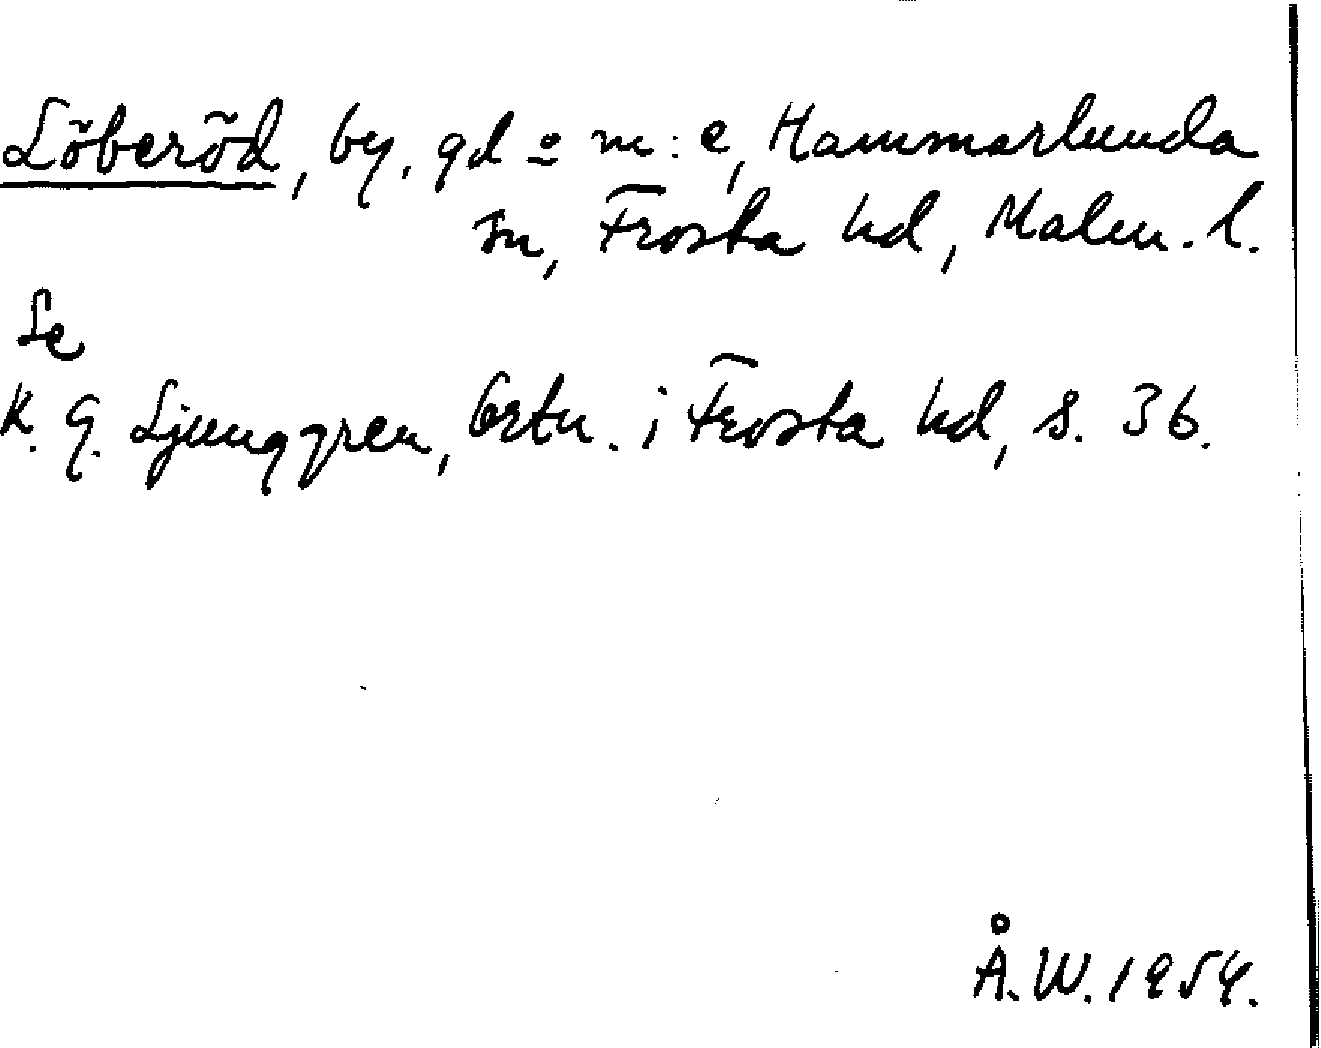 Löberöd, by, gd o m:e, Hammarlunda
sn, Frosta hd, Malm. l.
Se
K. G. Ljunggren, Ortn. i Frosta hd, s. 36.
Å.W. 1954.